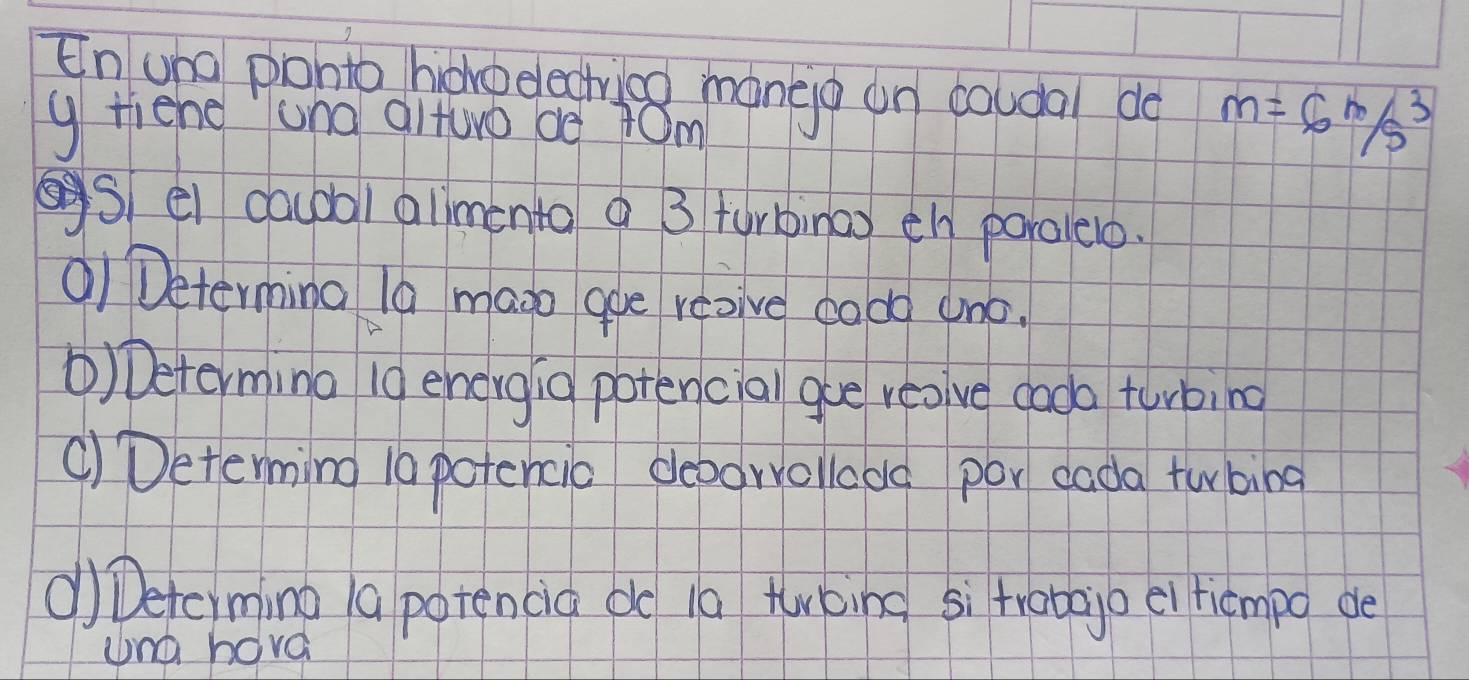 En una planta hidroelectrica maneja un caudal de m = 6 m/s³
y tiene una altura de 70m
si el caudal alimenta a 3 turbinas en paralelo.
a) Determina la masa que resive cada una.
b) Determina la energia potencial que resive cada turbina
c) Determina la potencia desarrollada por cada turbina
d) Determina la potencia de la turbina si trabaja el tiempo de
una hora